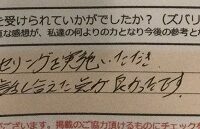 を受けられていかがでしたか？（ズバリ
な感想が、私達の何よりの力となり今後の参考と
セリングを実施いただき
話し合えた点が良かったです。
ございます。掲載のご協力頂けるものにチェックを